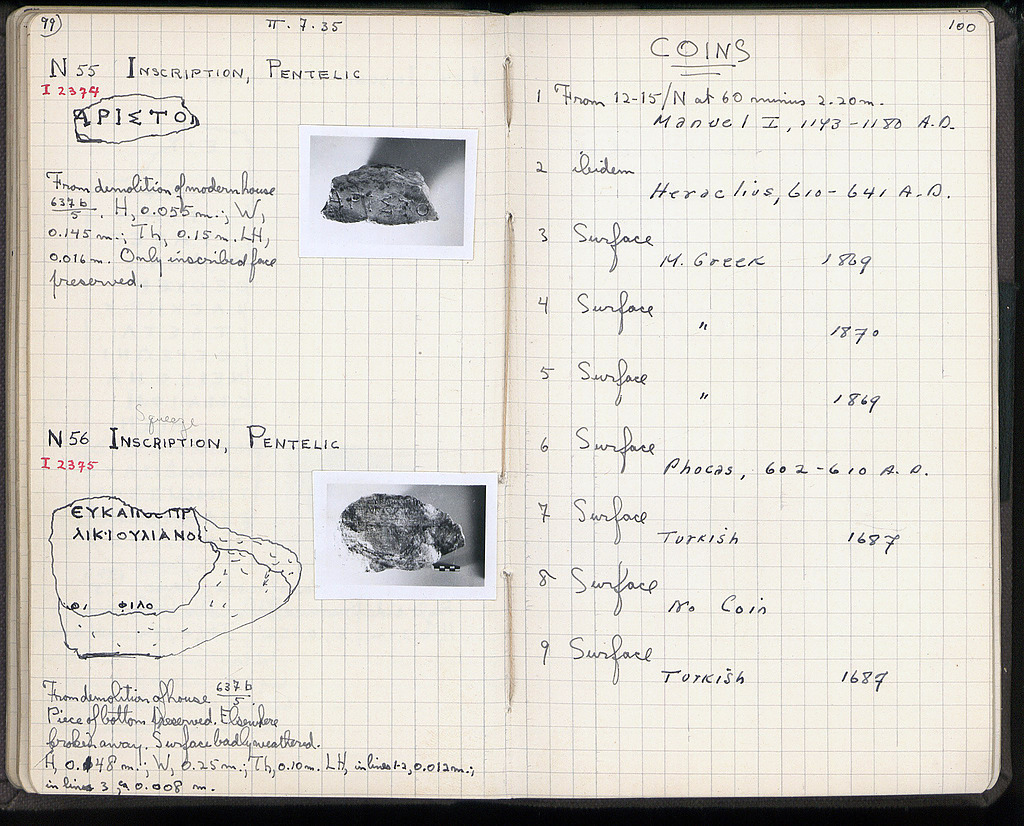 99
π. 7. 35
N 55 INSCRIPTION, PENTELIC
I 2374
ΑΡΙΣΤΟ
From demolition of modern house
637 b/5. H, 0.055 m.; W,
0.145 m.; Th, 0.15 m. LH,
0.016 m. Only inscribed face
preserved.
Squeeze
N 56 INSCRIPTION, PENTELIC
I 2375
ΕΥΚΑΠΠΟΣ ΠΡ
ΛΙΚ·ΙΟΥΛΙΑΝΟ
ΦΙ ΦΙΛΟ
From demolition of house 637 b/5
Piece of bottom preserved. Elsewhere
broken away. Surface badly weathered.
H, 0.148 m.; W, 0.25 m.; Th, 0.10 m. LH, in lines 1-2, 0.012 m.;
in line 3, 0.008 m.
100
COINS
1 From 12-15/N at 60 minus 2.20 m.
Manuel I, 1143-1180 A.D.
2 ibidem
Heraclius, 610-641 A.D.
3 Surface
M. Greek 1869
4 Surface
" 1870
5 Surface
" 1869
6 Surface
Phocas, 602-610 A.D.
7 Surface
Turkish 1687
8 Surface
No Coin
9 Surface
Turkish 1687